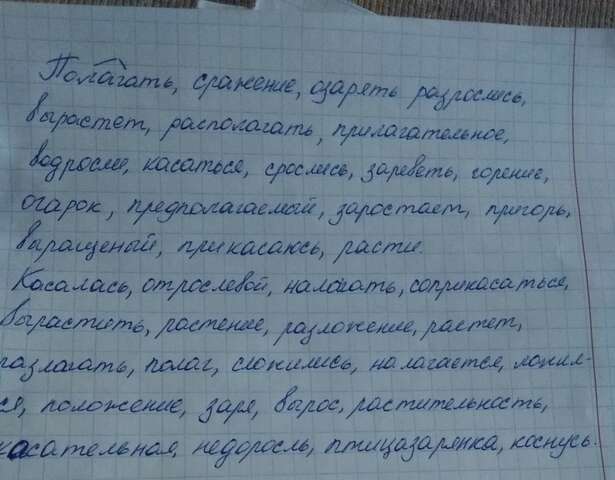 Полагать, сражение, озарять разрослись,
вырастет, располагать, прилагательное,
водросли, касаться, срослись, заревать, горение,
огарок, предполагаемый, заростает, пригорь,
выращеный, прикасаюсь, расти.
Касалась, отрослевой, налогать, соприкасаться,
вырастить, растение, разложение, растет,
разлагать, полог, сложились, налагается, ложил-
ся, положение, заря, вырос, растительность,
касательная, недоросль, птицазарянка, коснусь.